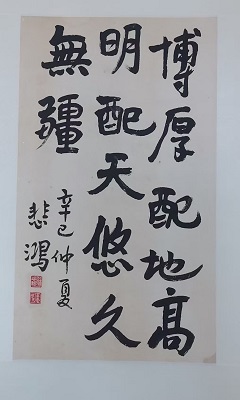 博厚配地高
明配天悠久
無疆
辛巳仲夏
悲鴻